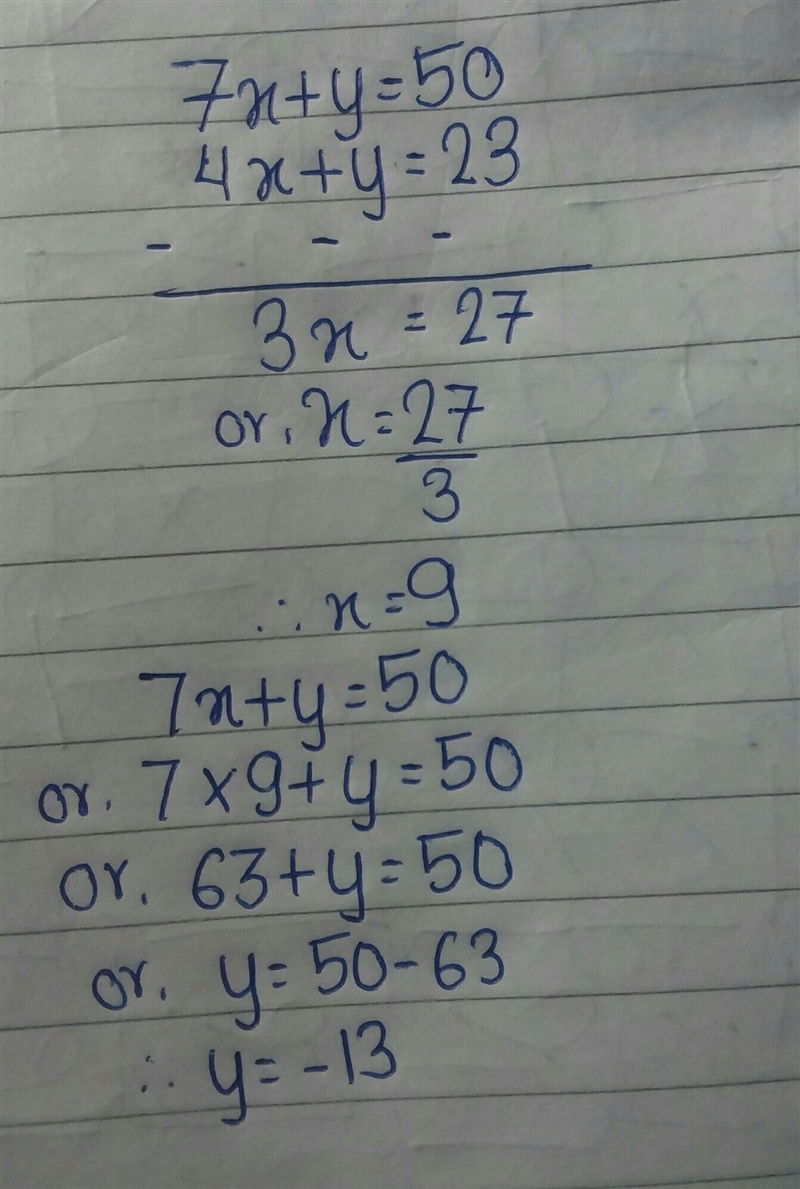 7x+y=50
4x+y=23
- - -
3x = 27
or. x=27/3
∴ x=9
7x+y=50
or. 7×9+y=50
or. 63+y=50
or. y=50-63
∴ y=-13